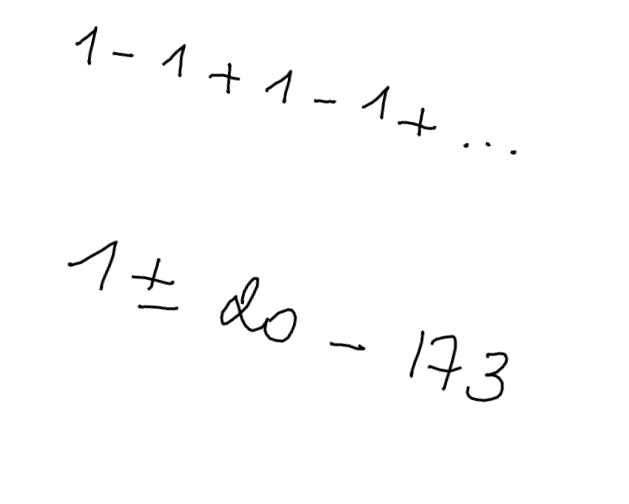 1 - 1 + 1 - 1 + ...
1 ± 20 - 173